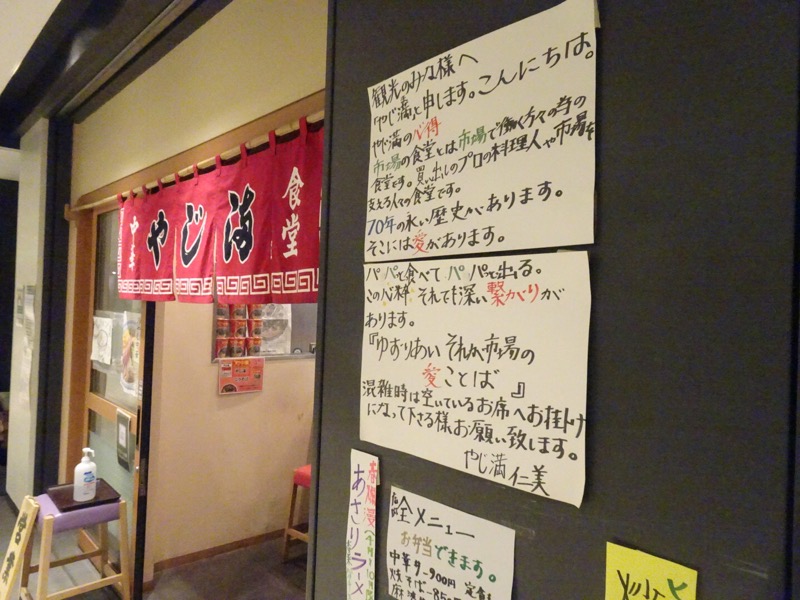 中華
やじ満
食堂
観光のみな様へ
「やじ満」と申します。こんにちは。
やじ満の心得
市場の食堂とは市場で働く方々の為の
食堂です。買い出しのプロの料理人や市場を
支える人々の食堂です。
70年の永い歴史があります。
そこには愛があります。
パッパと食べてパッパと出る。
この心粋 それでも深い繋がりが
あります。
『ゆずりあい それが市場の
愛ことば』
混雑時は空いているお席へお掛け
になって下さる様お願い致します。
やじ満 仁美
あさりラーメ
全メニュー
お弁当できます。
中華 900円 定食
焼そば 850